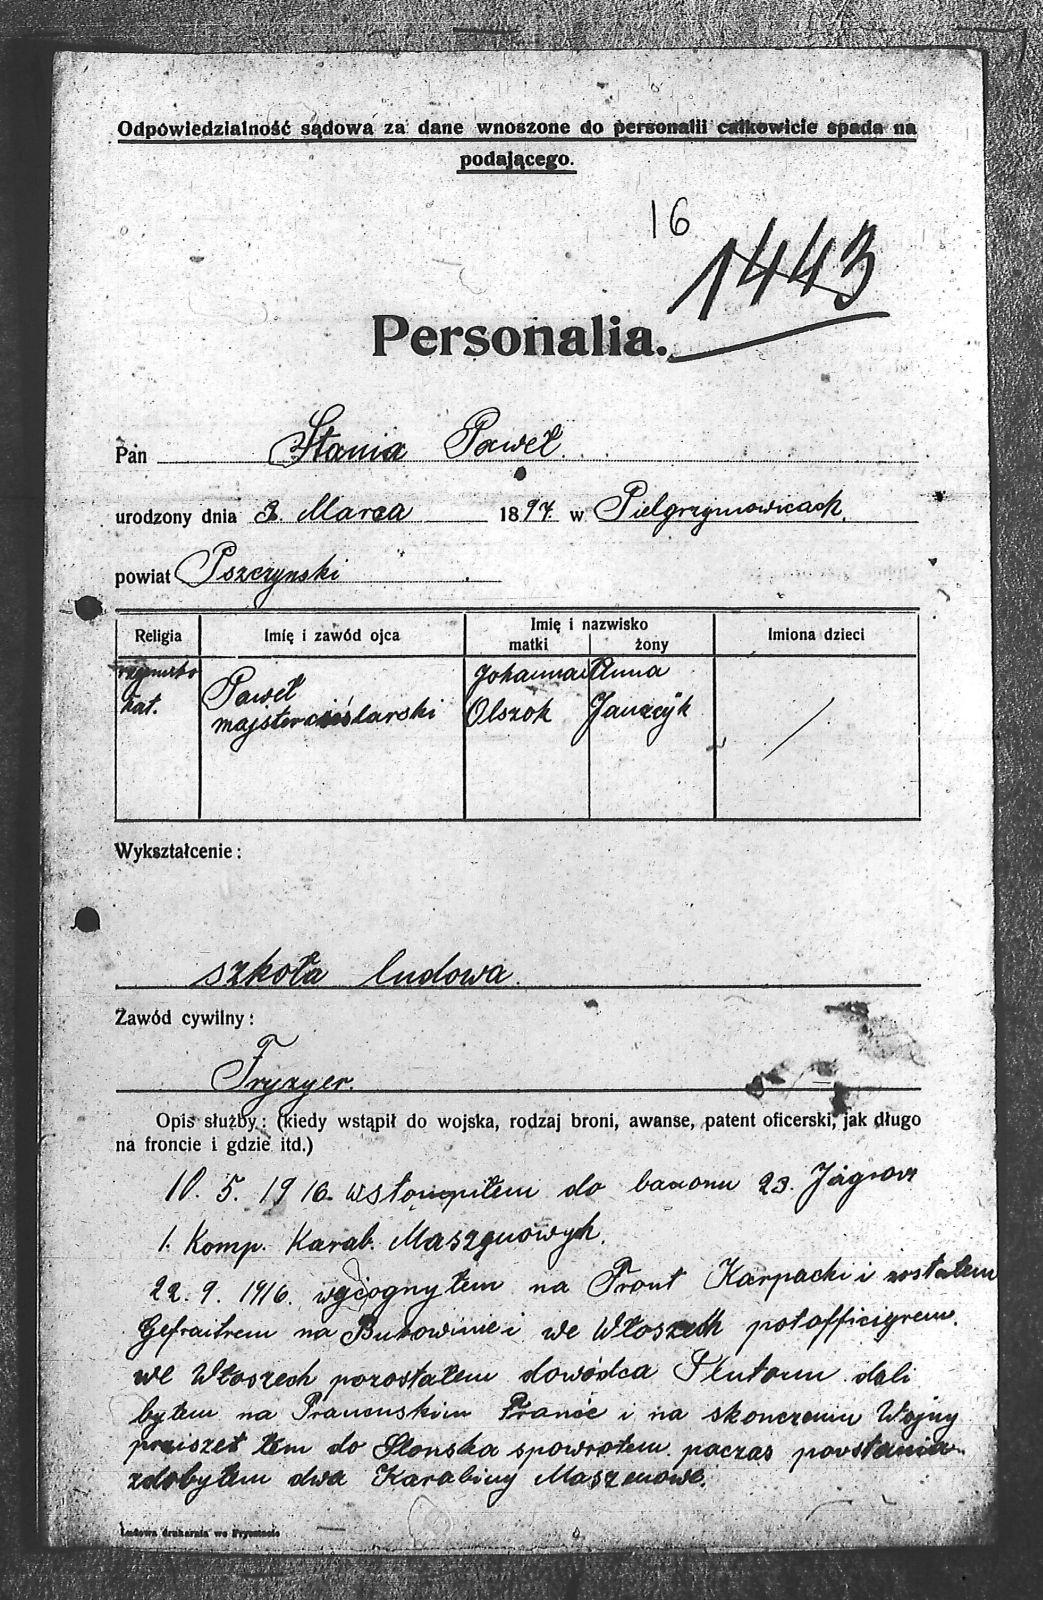 Odpowiedzialność sądowa za dane wnoszone do personalii całkowicie spada na
podającego.
16
1443
Personalia.
Pan Stania Paweł.
urodzony dnia 3. Marca 1897. w Pielgrzymowicach.
powiat Pszczynski
Religia Imię i zawód ojca Imię i nazwisko Imiona dzieci
matki żony
rzymsko Johanna Anna
kat. Paweł Olszok Jauzcyk
majster cieślarski
Wykształcenie:
szkoła ludowa.
Zawód cywilny:
Fryzyer.
Opis służby: (kiedy wstąpił do wojska, rodzaj broni, awanse, patent oficerski, jak długo
na froncie i gdzie itd.)
10. 5. 1916. do 23. Jägrow
1. Komp. Karab. Maszynowych.
22. 9. 1916. na Front Karpacki i zostałem
na Bukowinie i we Włoszech
we Włoszech pozostałem dowódca Plutonu dali
byłem na Francuskim Froncie i na skonczeniu Wojny
do Slonska spowrotem paczas povstania
zdobyłem dwa Karabiny Maszenowe.
Ludowa drukarnia we Frysztacie